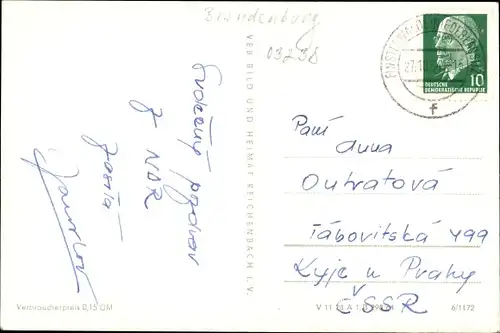 Brandenburg
03238
DEUTSCHE
DEMOKRATISCHE REPUBLIK
10
f
VEB BILD UND HEIMAT REICHENBACH I. V.
Srdečný pozdrav
z NDR
zasílá
Paní
Anna
Outratová
Tábovitská 499
Kyje u Prahy
ČSSR
Verbraucherpreis 0,15 DM
V 11 28 A 1/B
6/1172